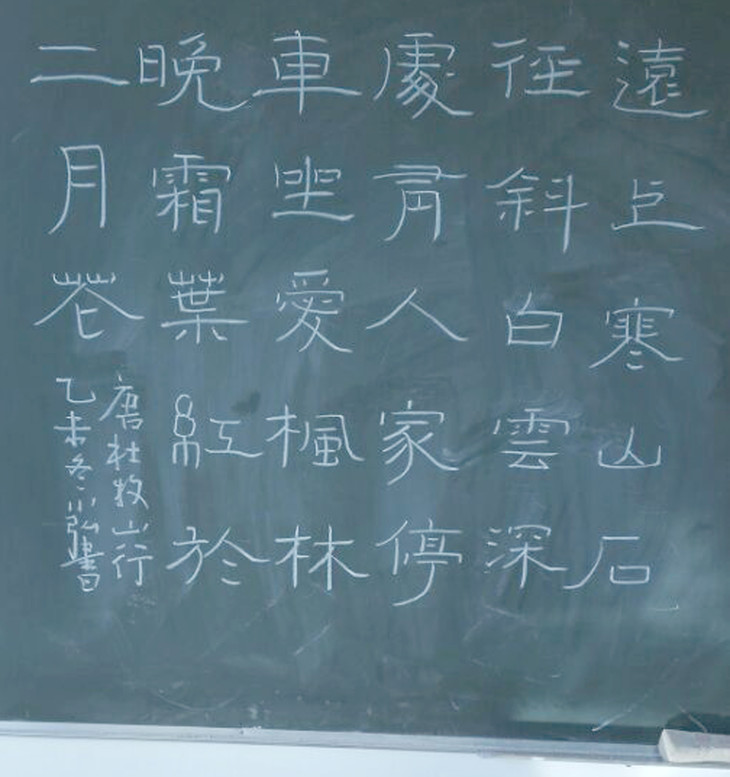 遠上寒山石
徑斜白雲深
處有人家停
車坐愛楓林
晚霜葉紅於
二月花
唐杜牧山行
乙未冬小書